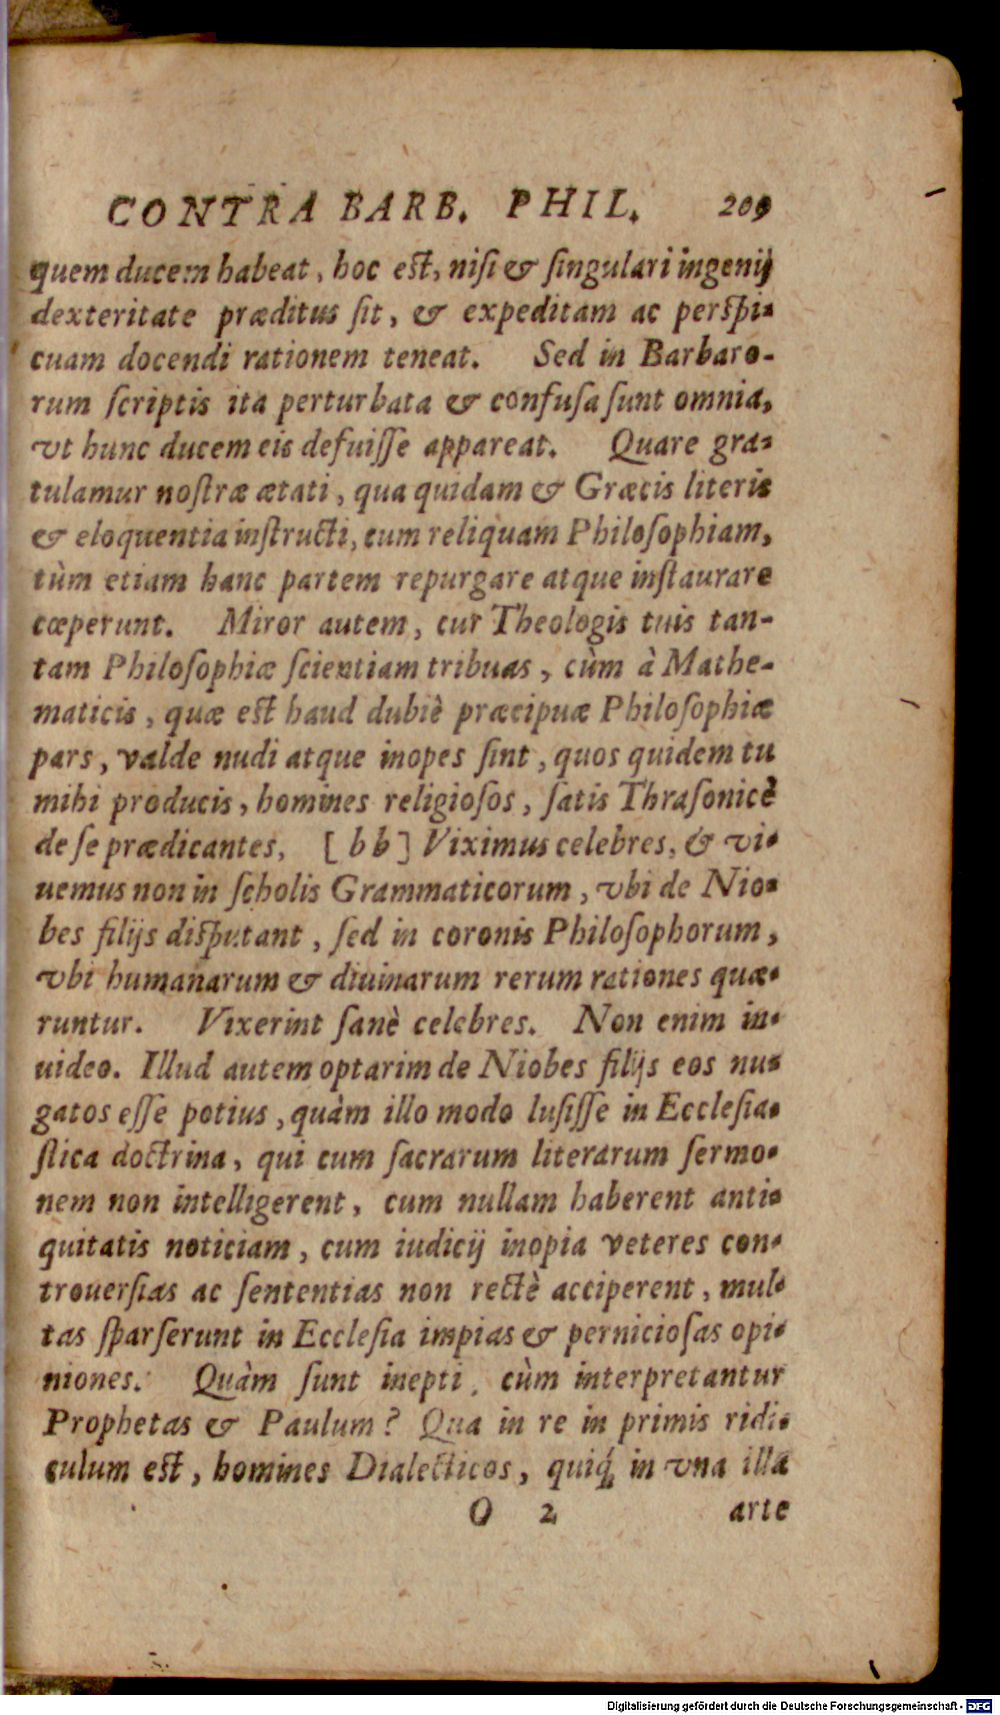 CONTRA BARB. PHIL. 209
quem ducem habeat, hoc est, nisi & singulari ingenij
dexteritate præditus sit, & expeditam ac perspi-
cuam docendi rationem teneat. Sed in Barbaro-
rum scriptis ita perturbata & confusa sunt omnia,
vt hunc ducem eis defuisse appareat. Quare gra-
tulamur nostræ ætati, qua quidam & Græcis literis
& eloquentia instructi, cum reliquam Philosophiam,
tùm etiam hanc partem repurgare atque instaurare
cœperunt. Miror autem, cur Theologis tuis tan-
tam Philosophiæ scientiam tribuas, cùm à Mathe-
maticis, quæ est haud dubiè præcipuæ Philosophiæ
pars, valde nudi atque inopes sint, quos quidem tu
mihi producis, homines religiosos, satis Thrasonicè
de se prædicantes, [bb] Viximus celebres, & vi-
uemus non in scholis Grammaticorum, vbi de Nio-
bes filijs disputant, sed in coronis Philosophorum,
vbi humanarum & diuinarum rerum rationes quæ-
runtur. Vixerint sanè celebres. Non enim in-
uideo. Illud autem optarim de Niobes filijs eos nu-
gatos esse potius, quàm illo modo lusisse in Ecclesia-
stica doctrina, qui cum sacrarum literarum sermo-
nem non intelligerent, cum nullam haberent anti-
quitatis noticiam, cum iudicij inopia veteres con-
trouersias ac sententias non rectè acciperent, mul-
tas sparserunt in Ecclesia impias & perniciosas opi-
niones. Quàm sunt inepti, cùm interpretantur
Prophetas & Paulum? Qua in re in primis ridi-
culum est, homines Dialecticos, quiq́; in vna illa
O 2 arte
Digitalisierung gefördert durch die Deutsche Forschungsgemeinschaft - DFG